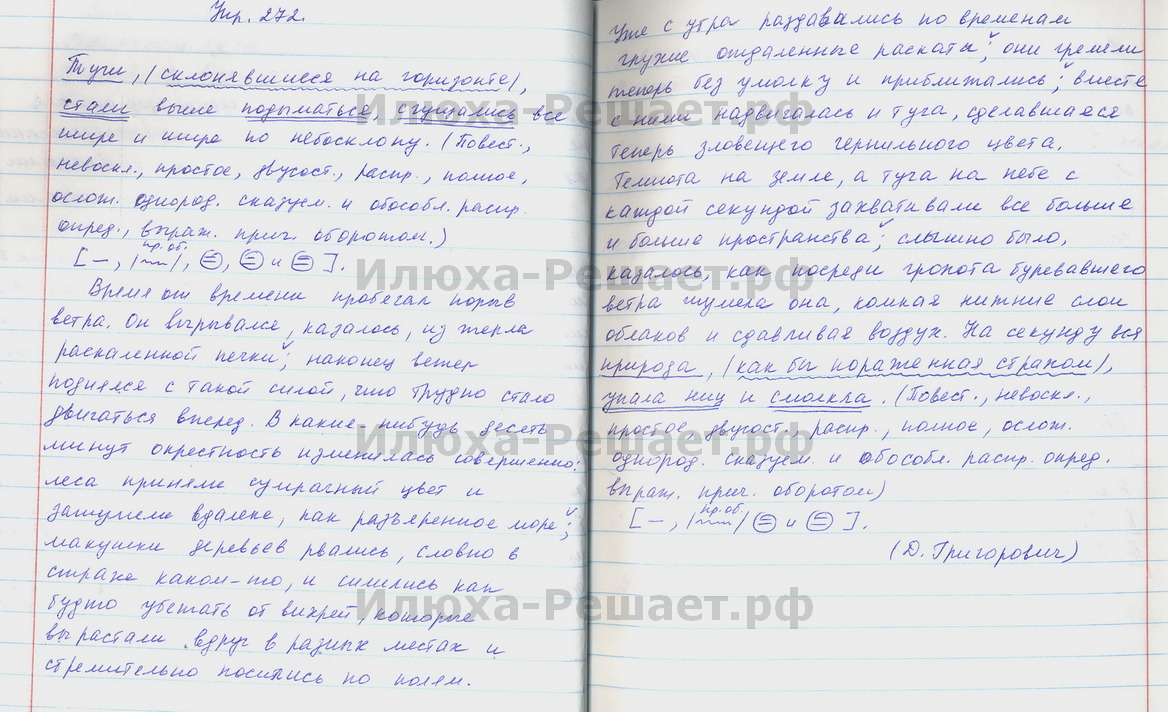 Упр. 272.
Тучи, /склонявшиеся на горизонте/,
стали выше подыматься, сгущались все
шире и шире по небосклону. (Повест.,
невоскл., простое, двусост., распр., полное,
ослож. однород. сказуем. и обособл. распр.
опред., выраж. прич. оборотом.)
пр. об.
[ — , /~~~/, =, = и = ].
Время от времени пробегал порыв
ветра. Он вырывался, казалось, из жерла
раскаленной печки; наконец ветер
поднялся с такой силой, что трудно стало
двигаться вперед. В какие-нибудь десять
минут окрестность изменилась совершенно:
леса приняли сумрачный цвет и
зашумели вдалеке, как разъяренное море;
макушки деревьев рвались, словно в
страхе каком-то, и силились как
будто убежать от вихрей, которые
вырастали вдруг в разных местах и
стремительно носились по полям.
Уже с утра раздавались по временам
глухие отдаленные раскаты; они гремели
теперь без умолку и приближались; вместе
с ними надвигалась и туча, сделавшаяся
теперь зловещего чернильного цвета.
Темнота на земле, а туча на небе с
каждой секундой захватывали все больше
и больше пространства; слышно было,
казалось, как посреди грохота буревавшего
ветра шумела она, комкая нижние слои
облаков и сдавливая воздух. На секунду вся
природа, /как бы пораженная страхом/,
упала ниц и смолкла. (Повест., невоскл.,
простое, двусост., распр., полное, ослож.
однород. сказуем. и обособл. распр. опред.
выраж. прич. оборотом)
пр. об.
[ — , /~~~/ = и = ].
(Д. Григорович)
Илюха-Решает.рф
Илюха-Решает.рф
Илюха-Решает.рф
Илюха-Решает.рф